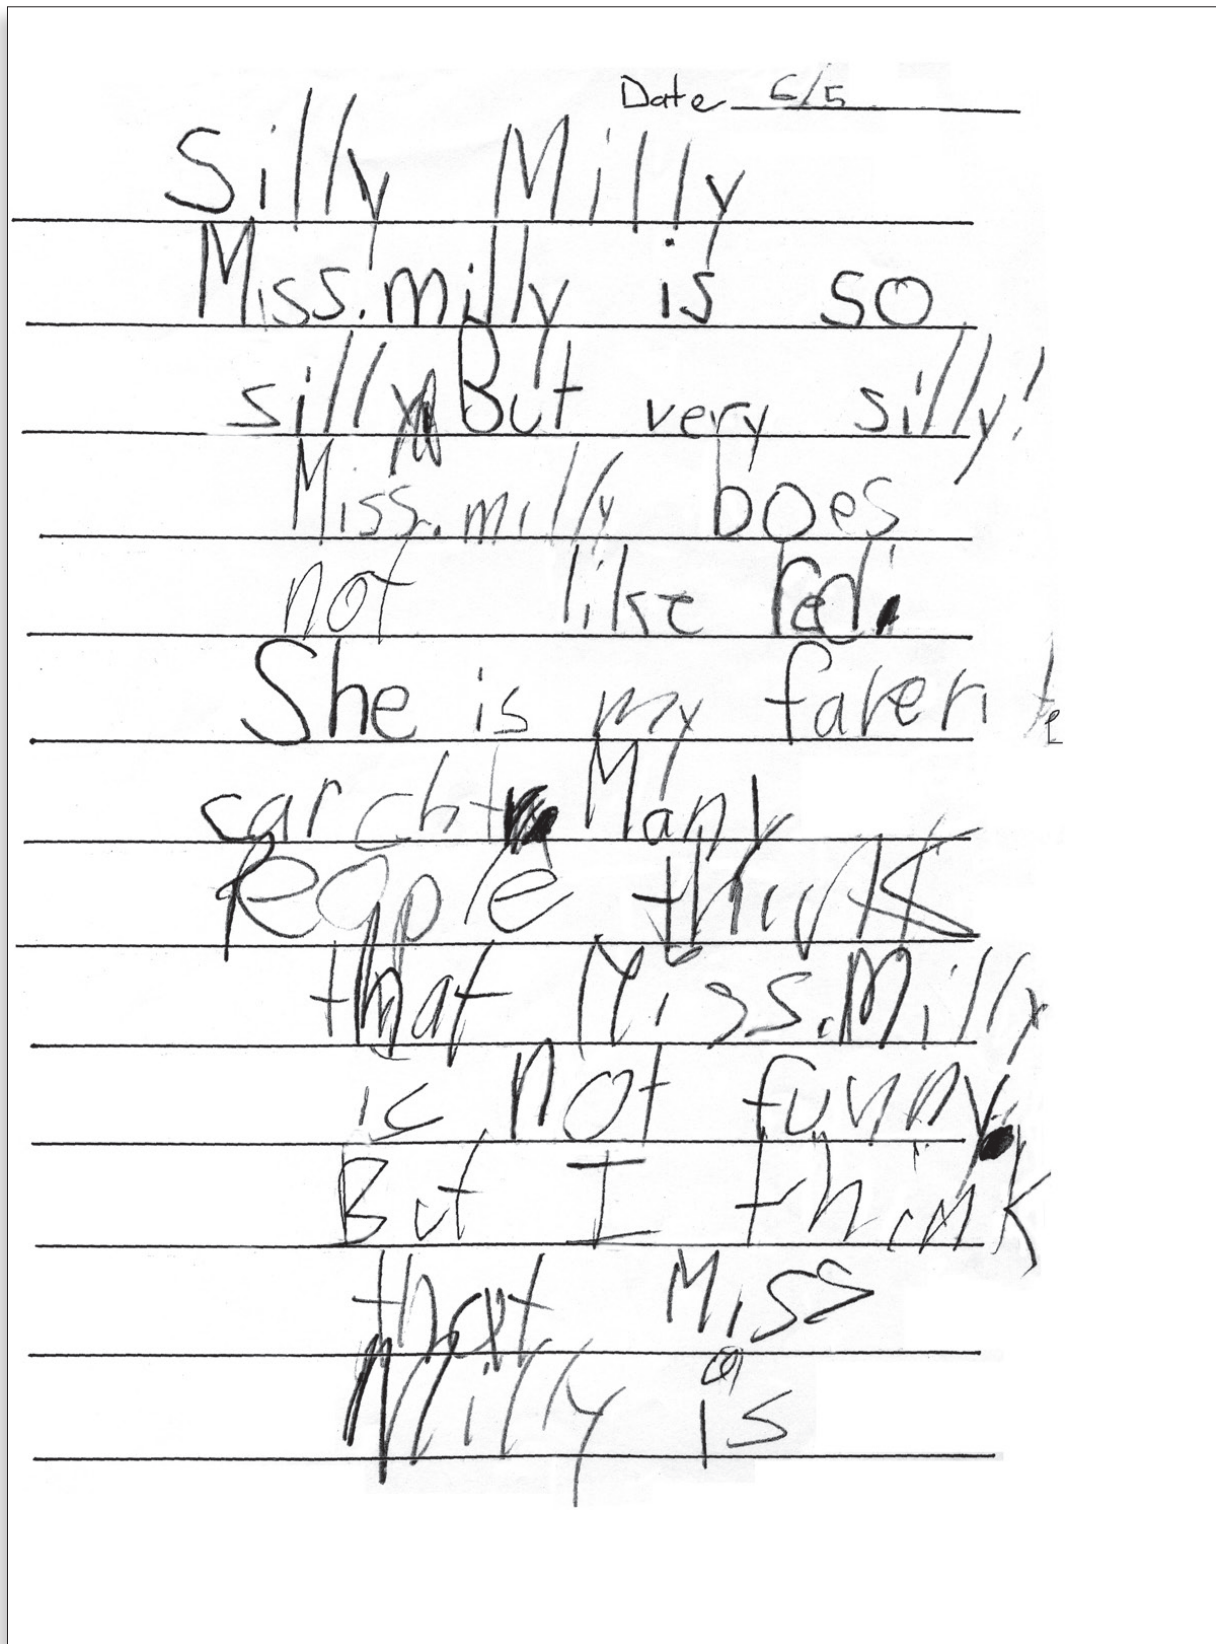 Date 6/5
Silly Milly
Miss.milly is so
silly But very silly!
Miss.milly boes
not like Red.
She is my faveri te
carcbtr. Many
Peaple think
that Miss.Milly
is not funny.
But I think
that Miss
Milly is